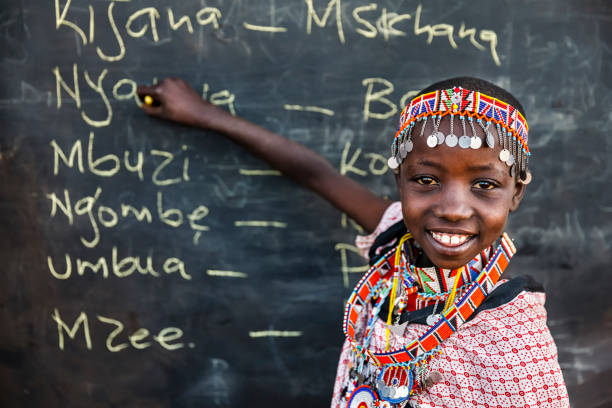 Kijana – Msichana
Nya – Bo
Mbuzi – Ko
Ngombe –
umbua – P
Mzee. –